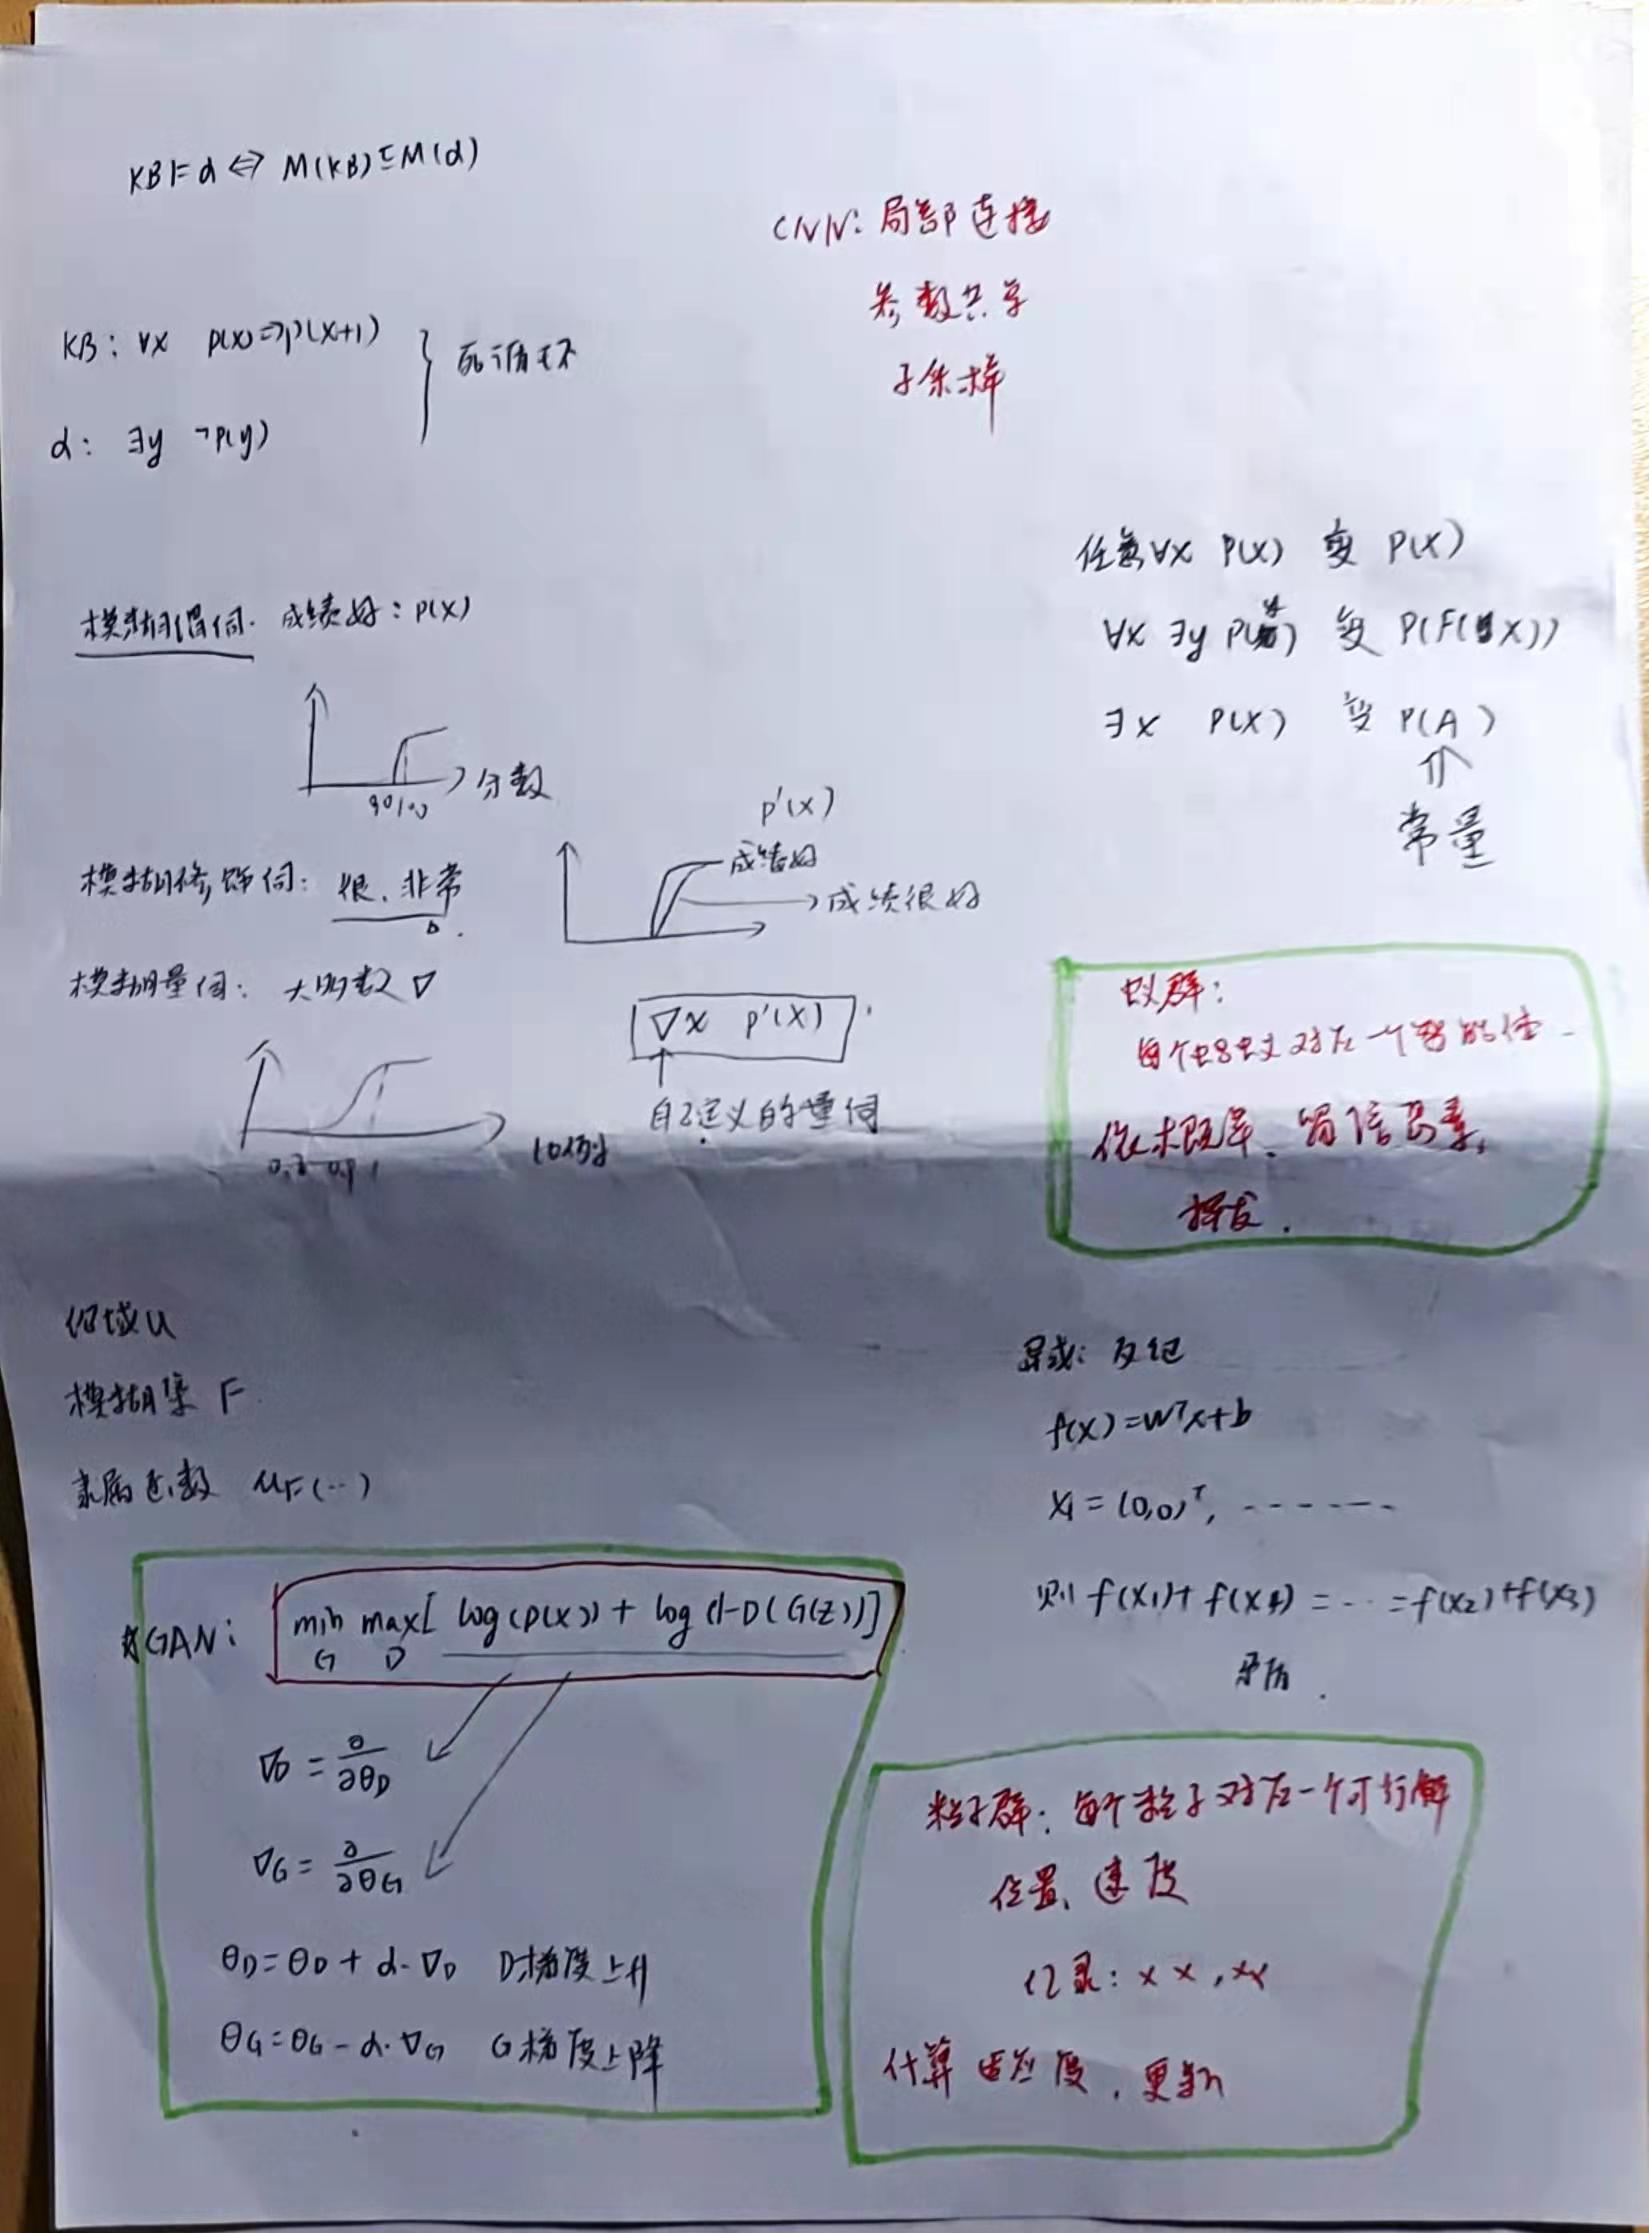 KB⊨α ⇔ M(KB)⊆M(α)
CNN: 局部连接
参数共享
子采样
KB: ∀x P(x)⇒P(x+1)
α: ∃y ¬P(y)
死循环
任意∀x P(x) 变 P(x)
∀x ∃y P(y) 变 P(F(x))
∃x P(x) 变 P(A)
常量
模糊谓词. 成绩好: P(x)
90 100
分数
模糊修饰词: 很、非常
P'(x)
成绩好
成绩很好
模糊量词: 大多数 ∇
∇x P'(x)
自己定义的量词
0.9 1
比例
蚁群:
每个蚂蚁对应一个智能体
依概率、留信息素,
挥发.
论域U
模糊集 F
隶属函数 μF(…)
异或: 反证
f(x)=wᵀx+b
x₁=(0,0)ᵀ, -------
则 f(x₁)+f(x₄)=…=f(x₂)+f(x₃)
矛盾.
GAN: min max[ log(D(x)) + log(1-D(G(z))]
G D
∇D = ∂/∂θD
∇G = ∂/∂θG
θD=θD+α·∇D D梯度上升
θG=θG-α·∇G G梯度上降
粒子群: 每个粒子对应一个可行解
位置、速度
记录: xx, xx
计算适应度, 更新